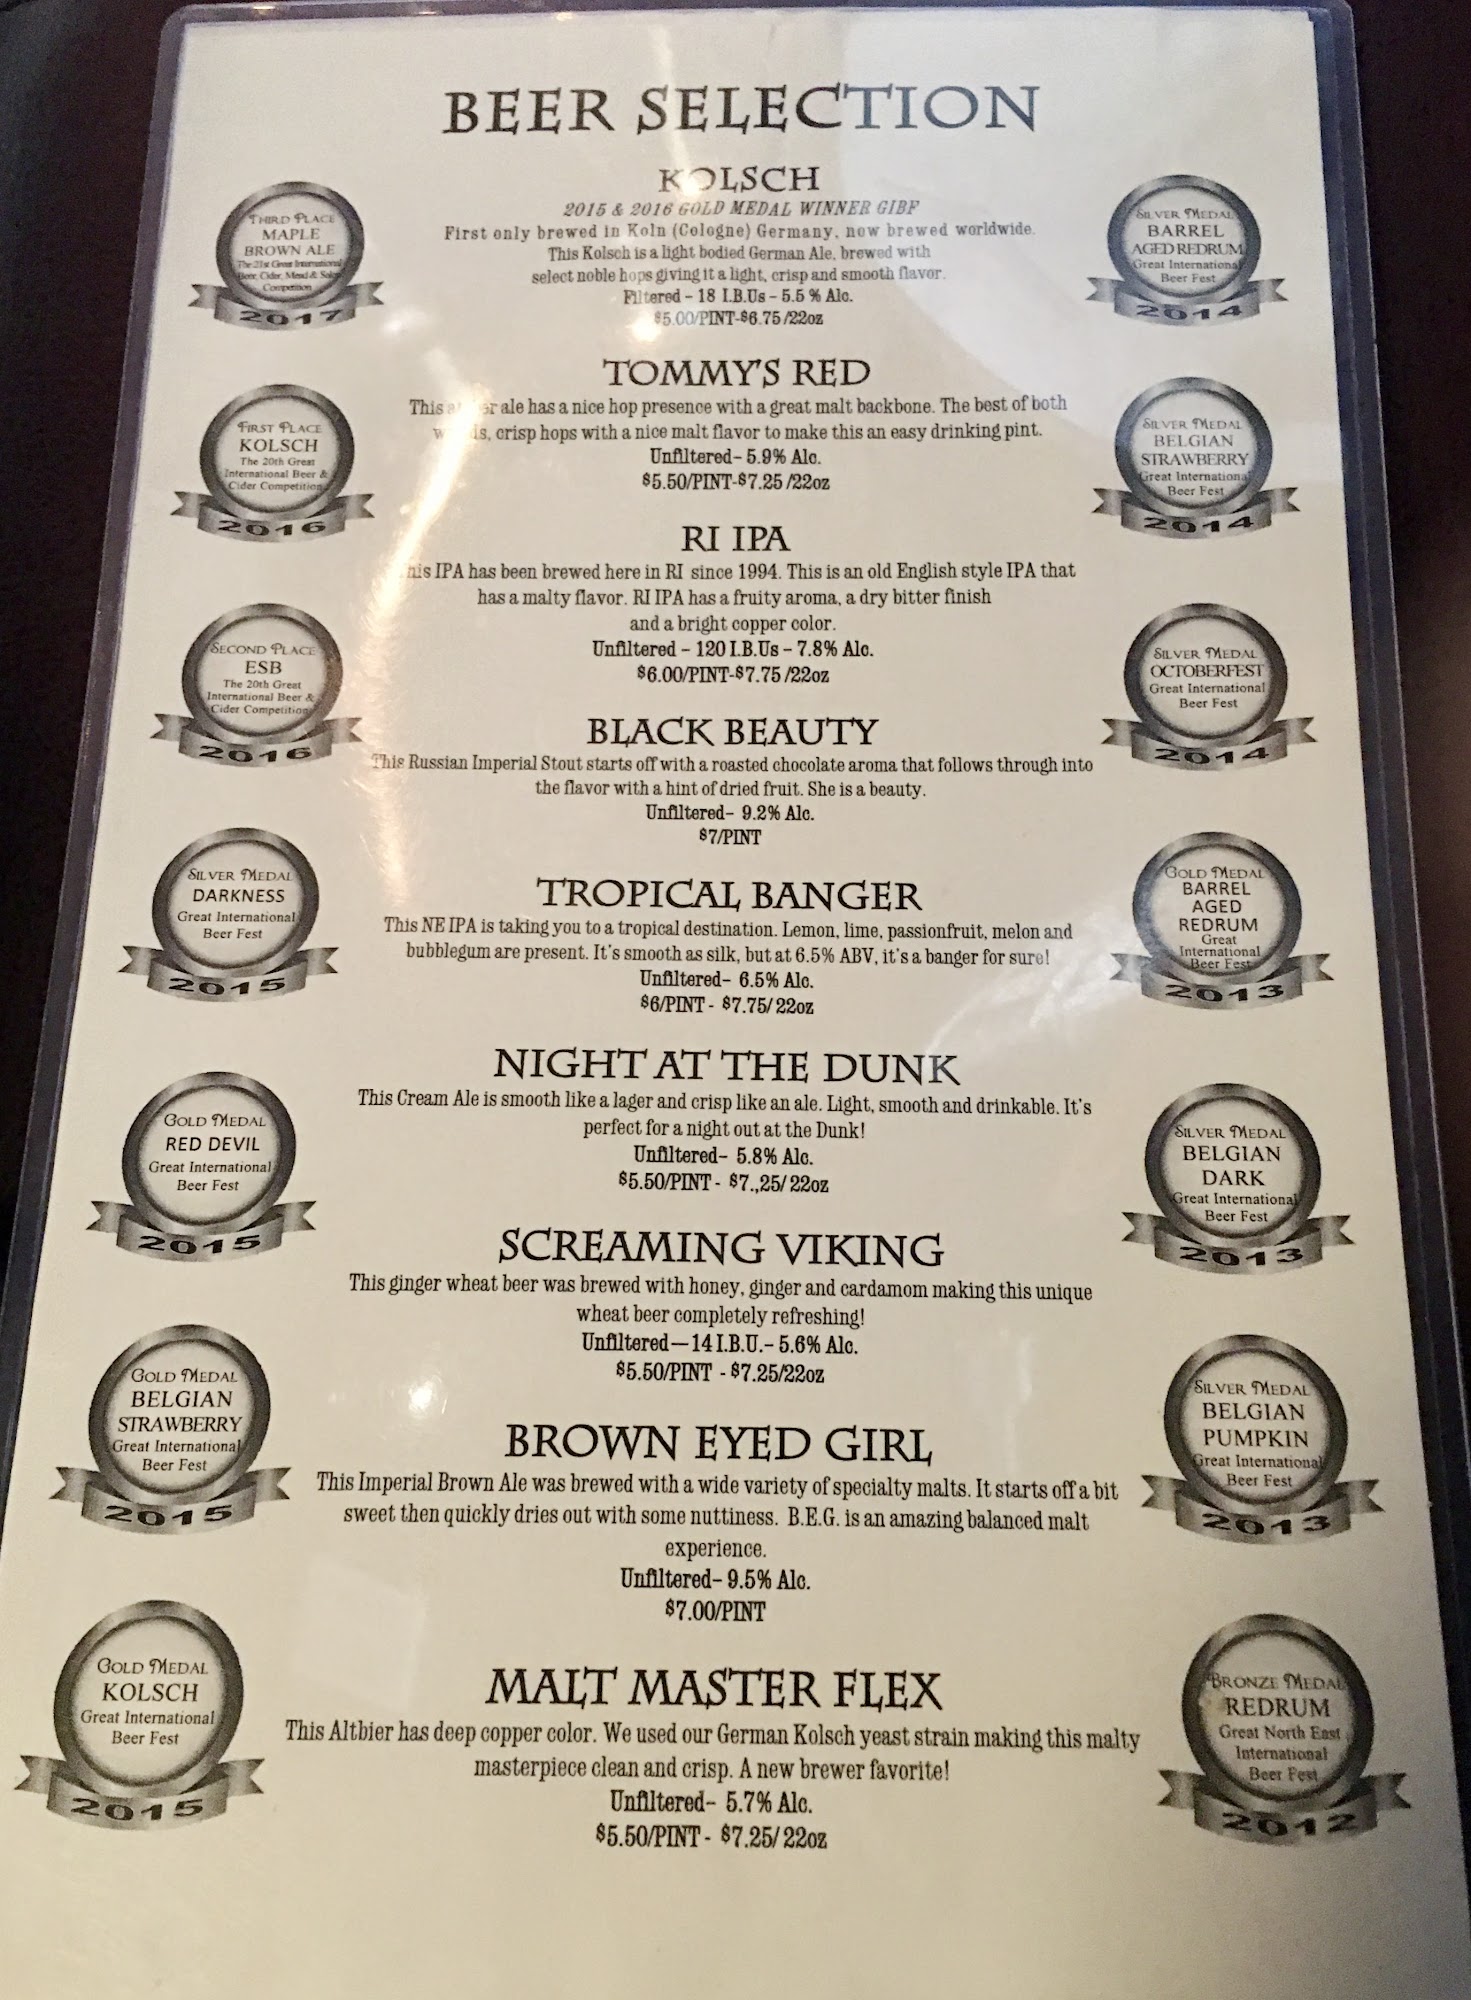 BEER SELECTION
KOLSCH
2015 & 2016 GOLD MEDAL WINNER GIBF
First only brewed in Koln (Cologne) Germany, now brewed worldwide.
This Kolsch is a light bodied German Ale, brewed with
select noble hops giving it a light, crisp and smooth flavor.
Filtered – 18 I.B.Us – 5.5 % Alc.
$5.00/PINT-$6.75/22oz
TOMMY'S RED
This ale has a nice hop presence with a great malt backbone. The best of both
crisp hops with a nice malt flavor to make this an easy drinking pint.
Unfiltered– 5.9% Alc.
$5.50/PINT-$7.25/22oz
RI IPA
This IPA has been brewed here in RI since 1994. This is an old English style IPA that
has a malty flavor. RI IPA has a fruity aroma, a dry bitter finish
and a bright copper color.
Unfiltered – 120 I.B.Us – 7.8% Alc.
$6.00/PINT-$7.75/22oz
BLACK BEAUTY
This Russian Imperial Stout starts off with a roasted chocolate aroma that follows through into
the flavor with a hint of dried fruit. She is a beauty.
Unfiltered– 9.2% Alc.
$7/PINT
TROPICAL BANGER
This NE IPA is taking you to a tropical destination. Lemon, lime, passionfruit, melon and
bubblegum are present. It's smooth as silk, but at 6.5% ABV, it's a banger for sure!
Unfiltered– 6.5% Alc.
$6/PINT - $7.75/22oz
NIGHT AT THE DUNK
This Cream Ale is smooth like a lager and crisp like an ale. Light, smooth and drinkable. It's
perfect for a night out at the Dunk!
Unfiltered– 5.8% Alc.
$5.50/PINT - $7.,25/22oz
SCREAMING VIKING
This ginger wheat beer was brewed with honey, ginger and cardamom making this unique
wheat beer completely refreshing!
Unfiltered—14 I.B.U.– 5.6% Alc.
$5.50/PINT - $7.25/22oz
BROWN EYED GIRL
This Imperial Brown Ale was brewed with a wide variety of specialty malts. It starts off a bit
sweet then quickly dries out with some nuttiness. B.E.G. is an amazing balanced malt
experience.
Unfiltered– 9.5% Alc.
$7.00/PINT
MALT MASTER FLEX
This Altbier has deep copper color. We used our German Kolsch yeast strain making this malty
masterpiece clean and crisp. A new brewer favorite!
Unfiltered– 5.7% Alc.
$5.50/PINT - $7.25/22oz
THIRD PLACE
MAPLE
BROWN ALE
The 21st Great International
Beer, Cider, Mead & Sake
Competition
2017
FIRST PLACE
KOLSCH
The 20th Great
International Beer &
Cider Competition
2016
SECOND PLACE
ESB
The 20th Great
International Beer &
Cider Competition
2016
SILVER MEDAL
DARKNESS
Great International
Beer Fest
2015
GOLD MEDAL
RED DEVIL
Great International
Beer Fest
2015
GOLD MEDAL
BELGIAN
STRAWBERRY
Great International
Beer Fest
2015
GOLD MEDAL
KOLSCH
Great International
Beer Fest
2015
SILVER MEDAL
BARREL
AGED REDRUM
Great International
Beer Fest
2014
SILVER MEDAL
BELGIAN
STRAWBERRY
Great International
Beer Fest
2014
SILVER MEDAL
OCTOBERFEST
Great International
Beer Fest
2014
GOLD MEDAL
BARREL
AGED
REDRUM
Great
International
Beer Fest
2013
SILVER MEDAL
BELGIAN
DARK
Great International
Beer Fest
2013
SILVER MEDAL
BELGIAN
PUMPKIN
Great International
Beer Fest
2013
BRONZE MEDAL
REDRUM
Great North East
International
Beer Fest
2012